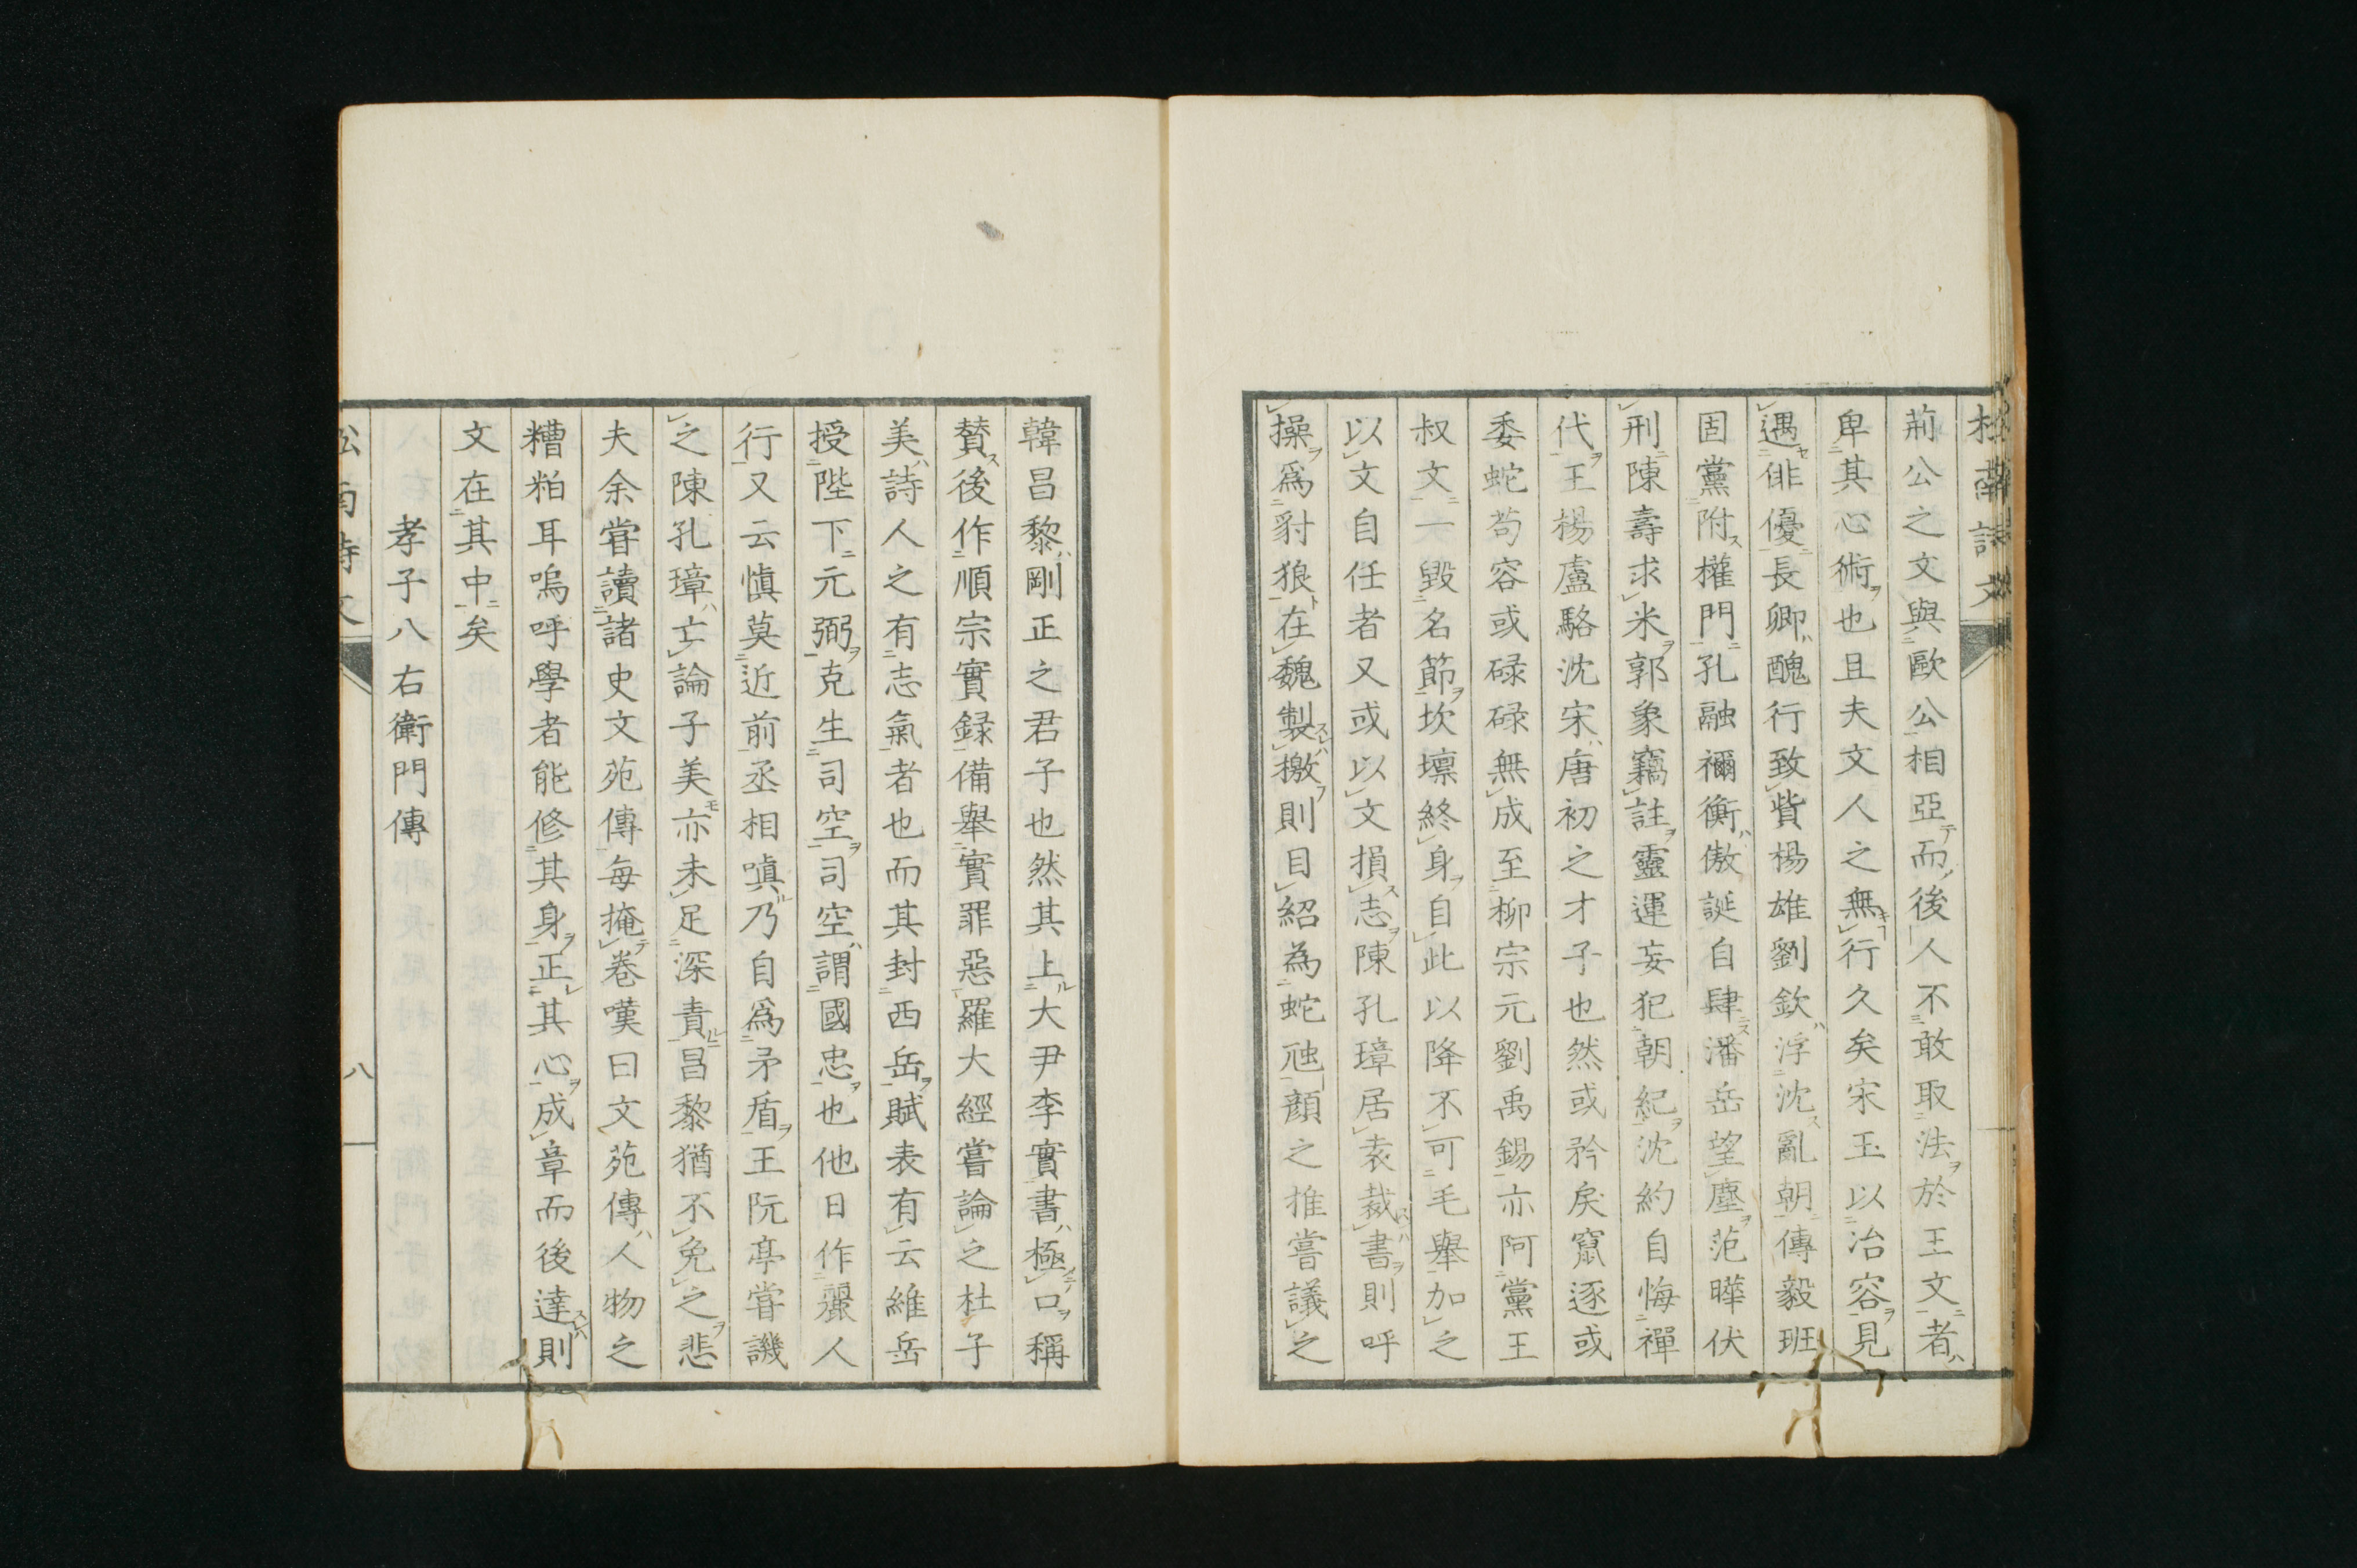 荊公之文與歐公相亞而後人不敢取法於王文者
卑其心術也且夫文人之無行久矣宋玉以冶容見
遇俳優長卿醜行致貲楊雄劉歆浮沈亂朝傳毅班
固黨附權門孔融禰衡傲誕自肆潘岳望塵范曄伏
刑陳壽求米郭象竊註靈運妄犯朝紀沈約自悔禪
代王楊盧駱沈宋唐初之才子也然或矜戾竄逐或
委蛇苟容或碌碌無成至柳宗元劉禹錫亦阿黨王
叔文一毀名節坎壈終身自此以降不可毛舉加之
以文自任者又或以文損志陳孔璋居袁裁書則呼
操爲豺狼在魏製檄則目紹為蛇虺顔之推嘗議之
韓昌黎剛正之君子也然其上大尹李實書極口稱
賛後作順宗實録備舉實罪惡羅大經嘗論之杜子
美詩人之有志氣者也而其封西岳賦表有云維岳
授陛下元弼克生司空司空謂國忠也他日作麗人
行又云慎莫近前丞相嗔乃自爲矛盾王阮亭甞譏
之陳孔璋亡論子美亦未足深責昌黎猶不免之悲
夫余甞讀諸史文苑傳每掩卷嘆曰文苑傳人物之
糟粕耳嗚呼學者能修其身正其心成章而後達則
文在其中矣
孝子八右衛門傳
八